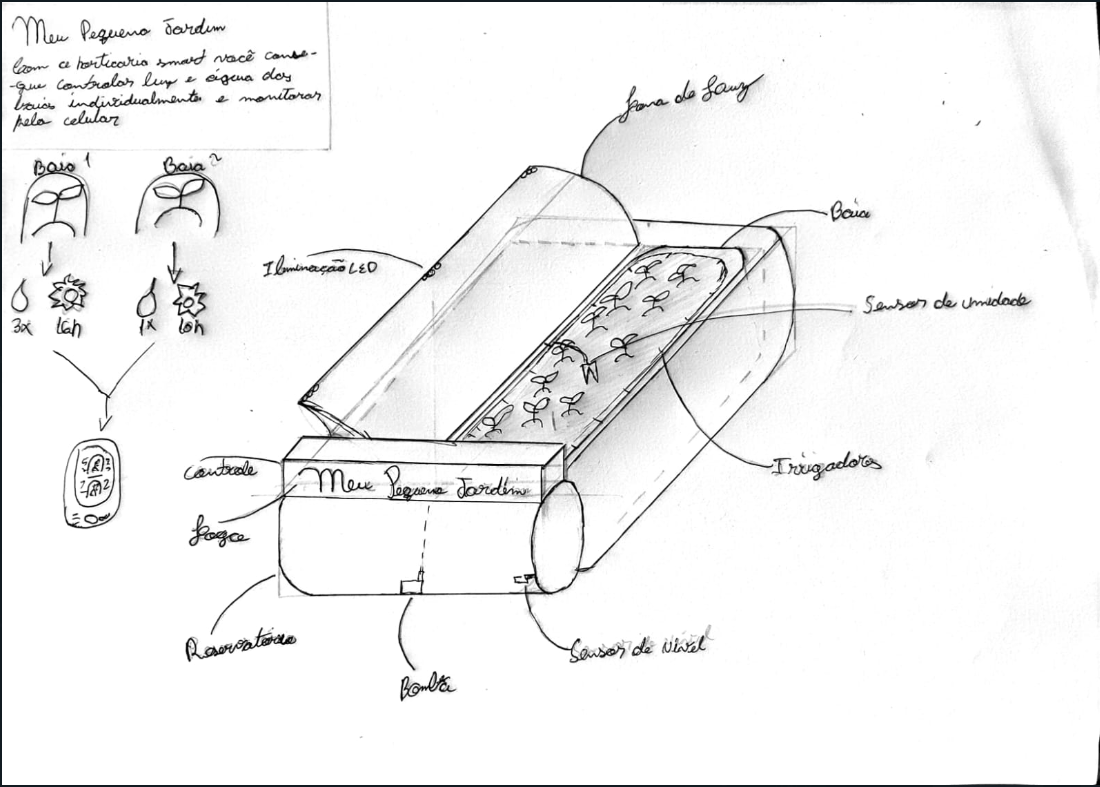 Meu Pequeno Jardim
Com a horticaria smart você conse-
-gue controlar luz e água das
baias individualmente e monitorar
pelo celular
Baia 1
Baia 2
3x
16h
1x
10h
Baia
Iluminação LED
Sensor de umidade
Irrigadores
Controle
Meu Pequeno Jardim
Reservatório
Bomba
Sensor de Nível